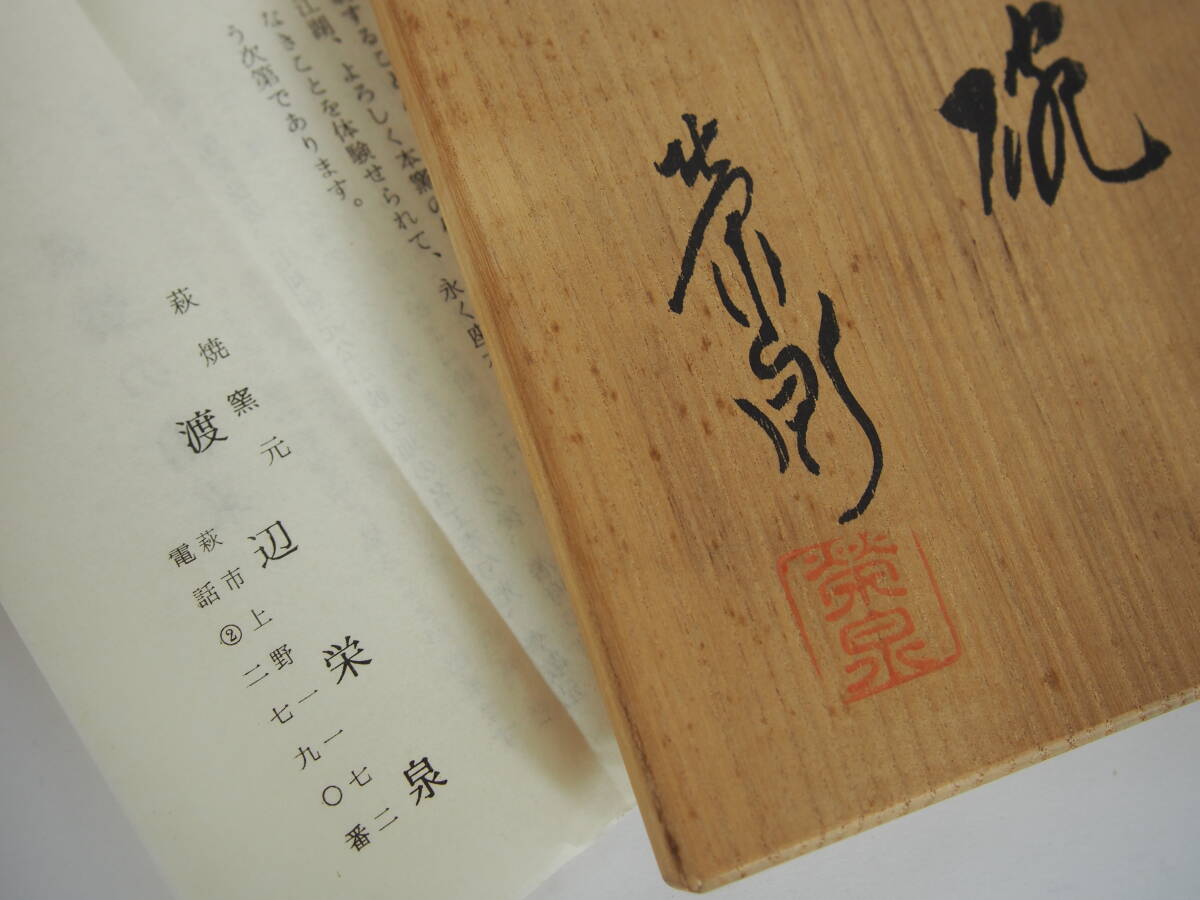 碗
榮泉
することを
江湖、よろしく本窯の
なきことを体験せられて、永く
う次第であります。
萩焼窯元
渡辺栄泉
萩市上野一一七二
電話②二七九〇番